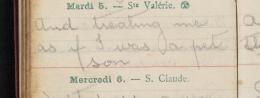 Mardi 5. — Ste Valérie.
And treating me
as if I was a pet
son
Mercredi 6. — S. Claude.